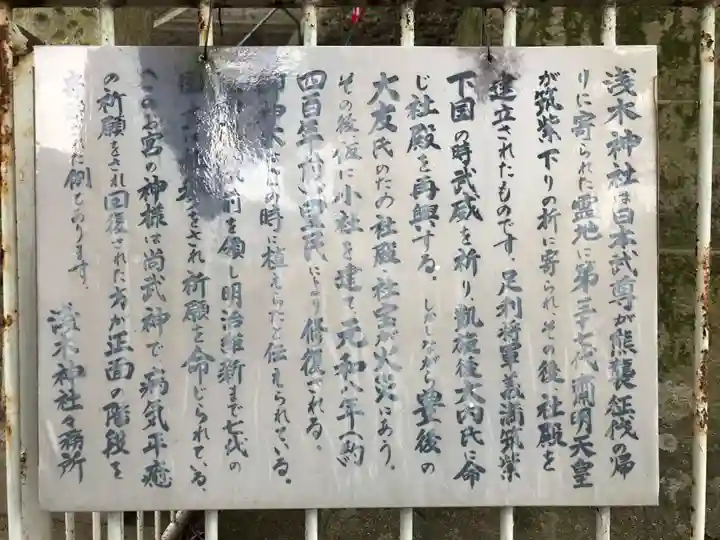 浅木神社は日本武尊が熊襲征伐の帰
りに寄られた霊地に第三十七代齊明天皇
が筑紫下りの折に寄られ、その後社殿を
建立されたものです。足利将軍義満筑紫
下国の時武威を祈り、凱旋後大内氏に命
じ社殿を再興する。しかしながら豊後の
大友氏のため社殿・社宝が火災にあう。
その後仮に小社を建て、元和八年(約
四百年前)里民により修復される。
御神木はこの時に植えられたと伝えられている。
前を領し明治維新まで七代の
をされ祈願を命じられている。
このお宮の神様は尚武神で病気平癒
の祈願をされ回復された方が正面の階段を
た例もあります。
浅木神社々務所